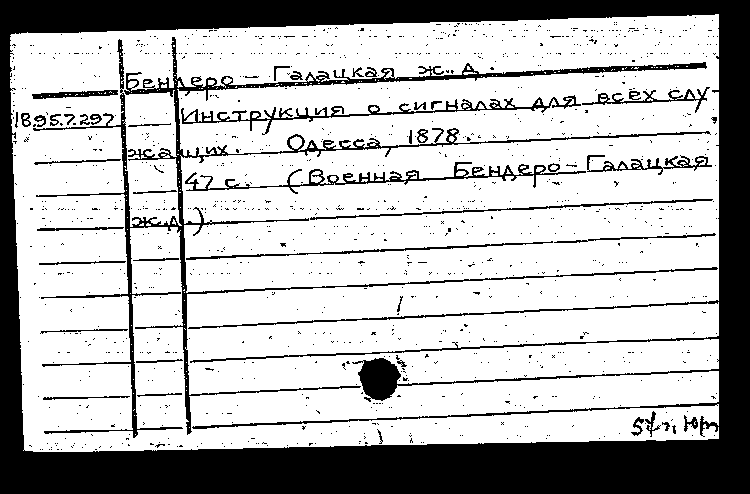 Бендеро-Галацкая ж.д.
18.957.297 Инструкция о сигналах для всех слу-
жащих. Одесса, 1878.
47 с. (Военная Бендеро-Галацкая
ж.д.)